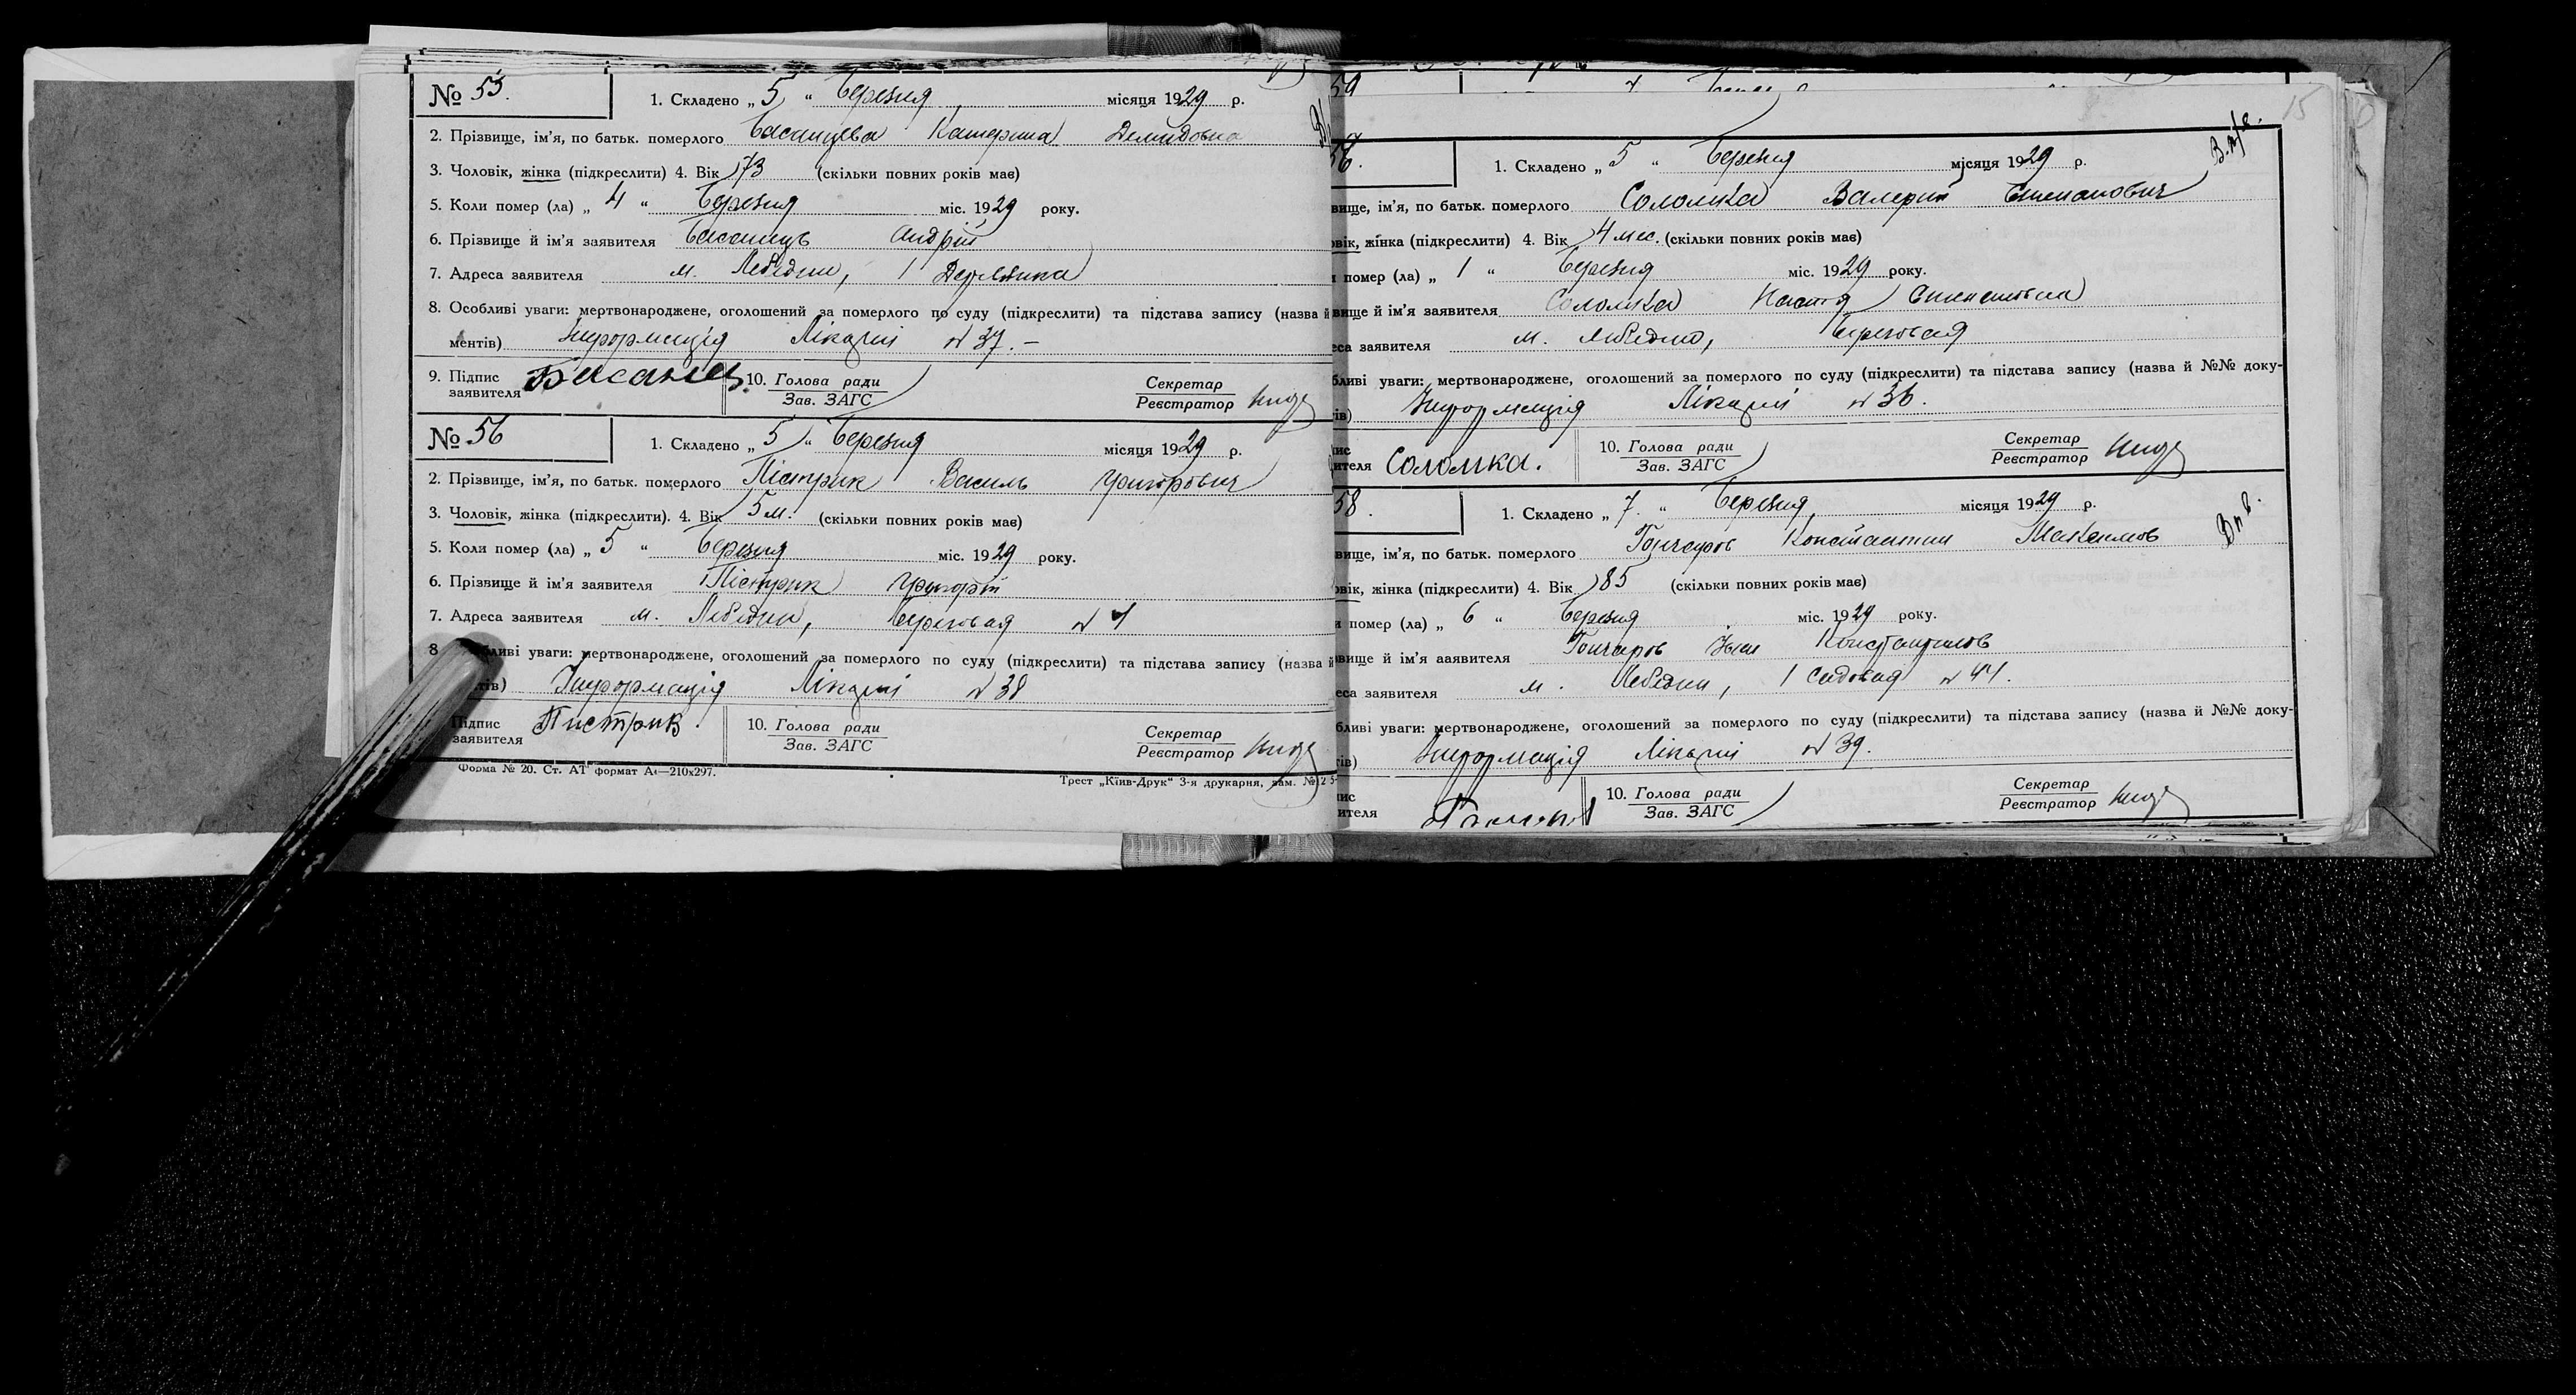 № 55.
1. Складено „ 5 “ Березня місяця 1929 р.
2. Прізвище, ім'я, по батьк. померлого Басанцева Катерина Демидовна
3. Чоловік, жінка (підкреслити) 4. Вік 73 (скільки повних років має)
5. Коли помер (ла) „ 4 “ Березня міс. 1929 року.
6. Прізвище й ім'я заявителя Басанець Андрій
7. Адреса заявителя м. Лебедин,
8. Особливі уваги: мертвонароджене, оголошений за померлого по суду (підкреслити) та підстава запису (назва й
ментів) Інформація Лікарні № 37. —
9. Підпис заявителя Басанец 10. Голова ради / Зав. ЗАГС Секретар / Реєстратор
№ 56
1. Складено „ 5 “ Березня місяця 1929 р.
2. Прізвище, ім'я, по батьк. померлого Пістрик Василь Григорович
3. Чоловік, жінка (підкреслити). 4. Вік 5 м. (скільки повних років має)
5. Коли помер (ла) „ 5 “ Березня міс. 1929 року.
6. Прізвище й ім'я заявителя Пістрик Григорій
7. Адреса заявителя м. Лебедин, Береговая № 4
8 ливі уваги: мертвонароджене, оголошений за померлого по суду (підкреслити) та підстава запису (назва й
тів) Інформація Лікарні № 38
Підпис заявителя Пистрик. 10. Голова ради / Зав. ЗАГС Секретар / Реєстратор
Форма № 20. Ст. АТ формат А4—210x297.
Трест „Київ-Друк“ 3-я друкарня, зам. №
59
15
1. Складено „ 5 “ Березня місяця 1929 р.
вище, ім'я, по батьк. померлого Соломка Валерий Степанович
овік, жінка (підкреслити) 4. Вік 4 мес. (скільки повних років має)
и помер (ла) „ 1 “ Березня міс. 1929 року.
вище й ім'я заявителя Соломка Настя Степановна
еса заявителя м. Лебедин, Береговая
бливі уваги: мертвонароджене, оголошений за померлого по суду (підкреслити) та підстава запису (назва й №№ доку-
ів) Інформація Лікарні № 36.
ис ителя Соломка. 10. Голова ради / Зав. ЗАГС Секретар / Реєстратор
58.
1. Складено „ 7. “ Березня місяця 1929 р.
вище, ім'я, по батьк. померлого Гончаров Константин Максимов
овік, жінка (підкреслити) 4. Вік 85 (скільки повних років має)
и помер (ла) „ 6 “ Березня міс. 1929 року.
вище й ім'я заявителя Гончаров Іван Константинов
еса заявителя м. Лебедин, 1 Садовая № 44.
бливі уваги: мертвонароджене, оголошений за померлого по суду (підкреслити) та підстава запису (назва й №№ доку-
ів) Інформація Лікарні № 39.
ис ителя 10. Голова ради / Зав. ЗАГС Секретар / Реєстратор